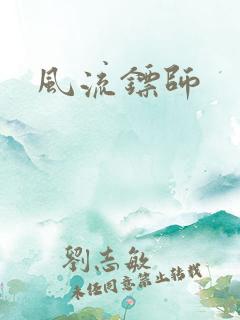 風流鏢師
劉志敏
未经同意禁止转载